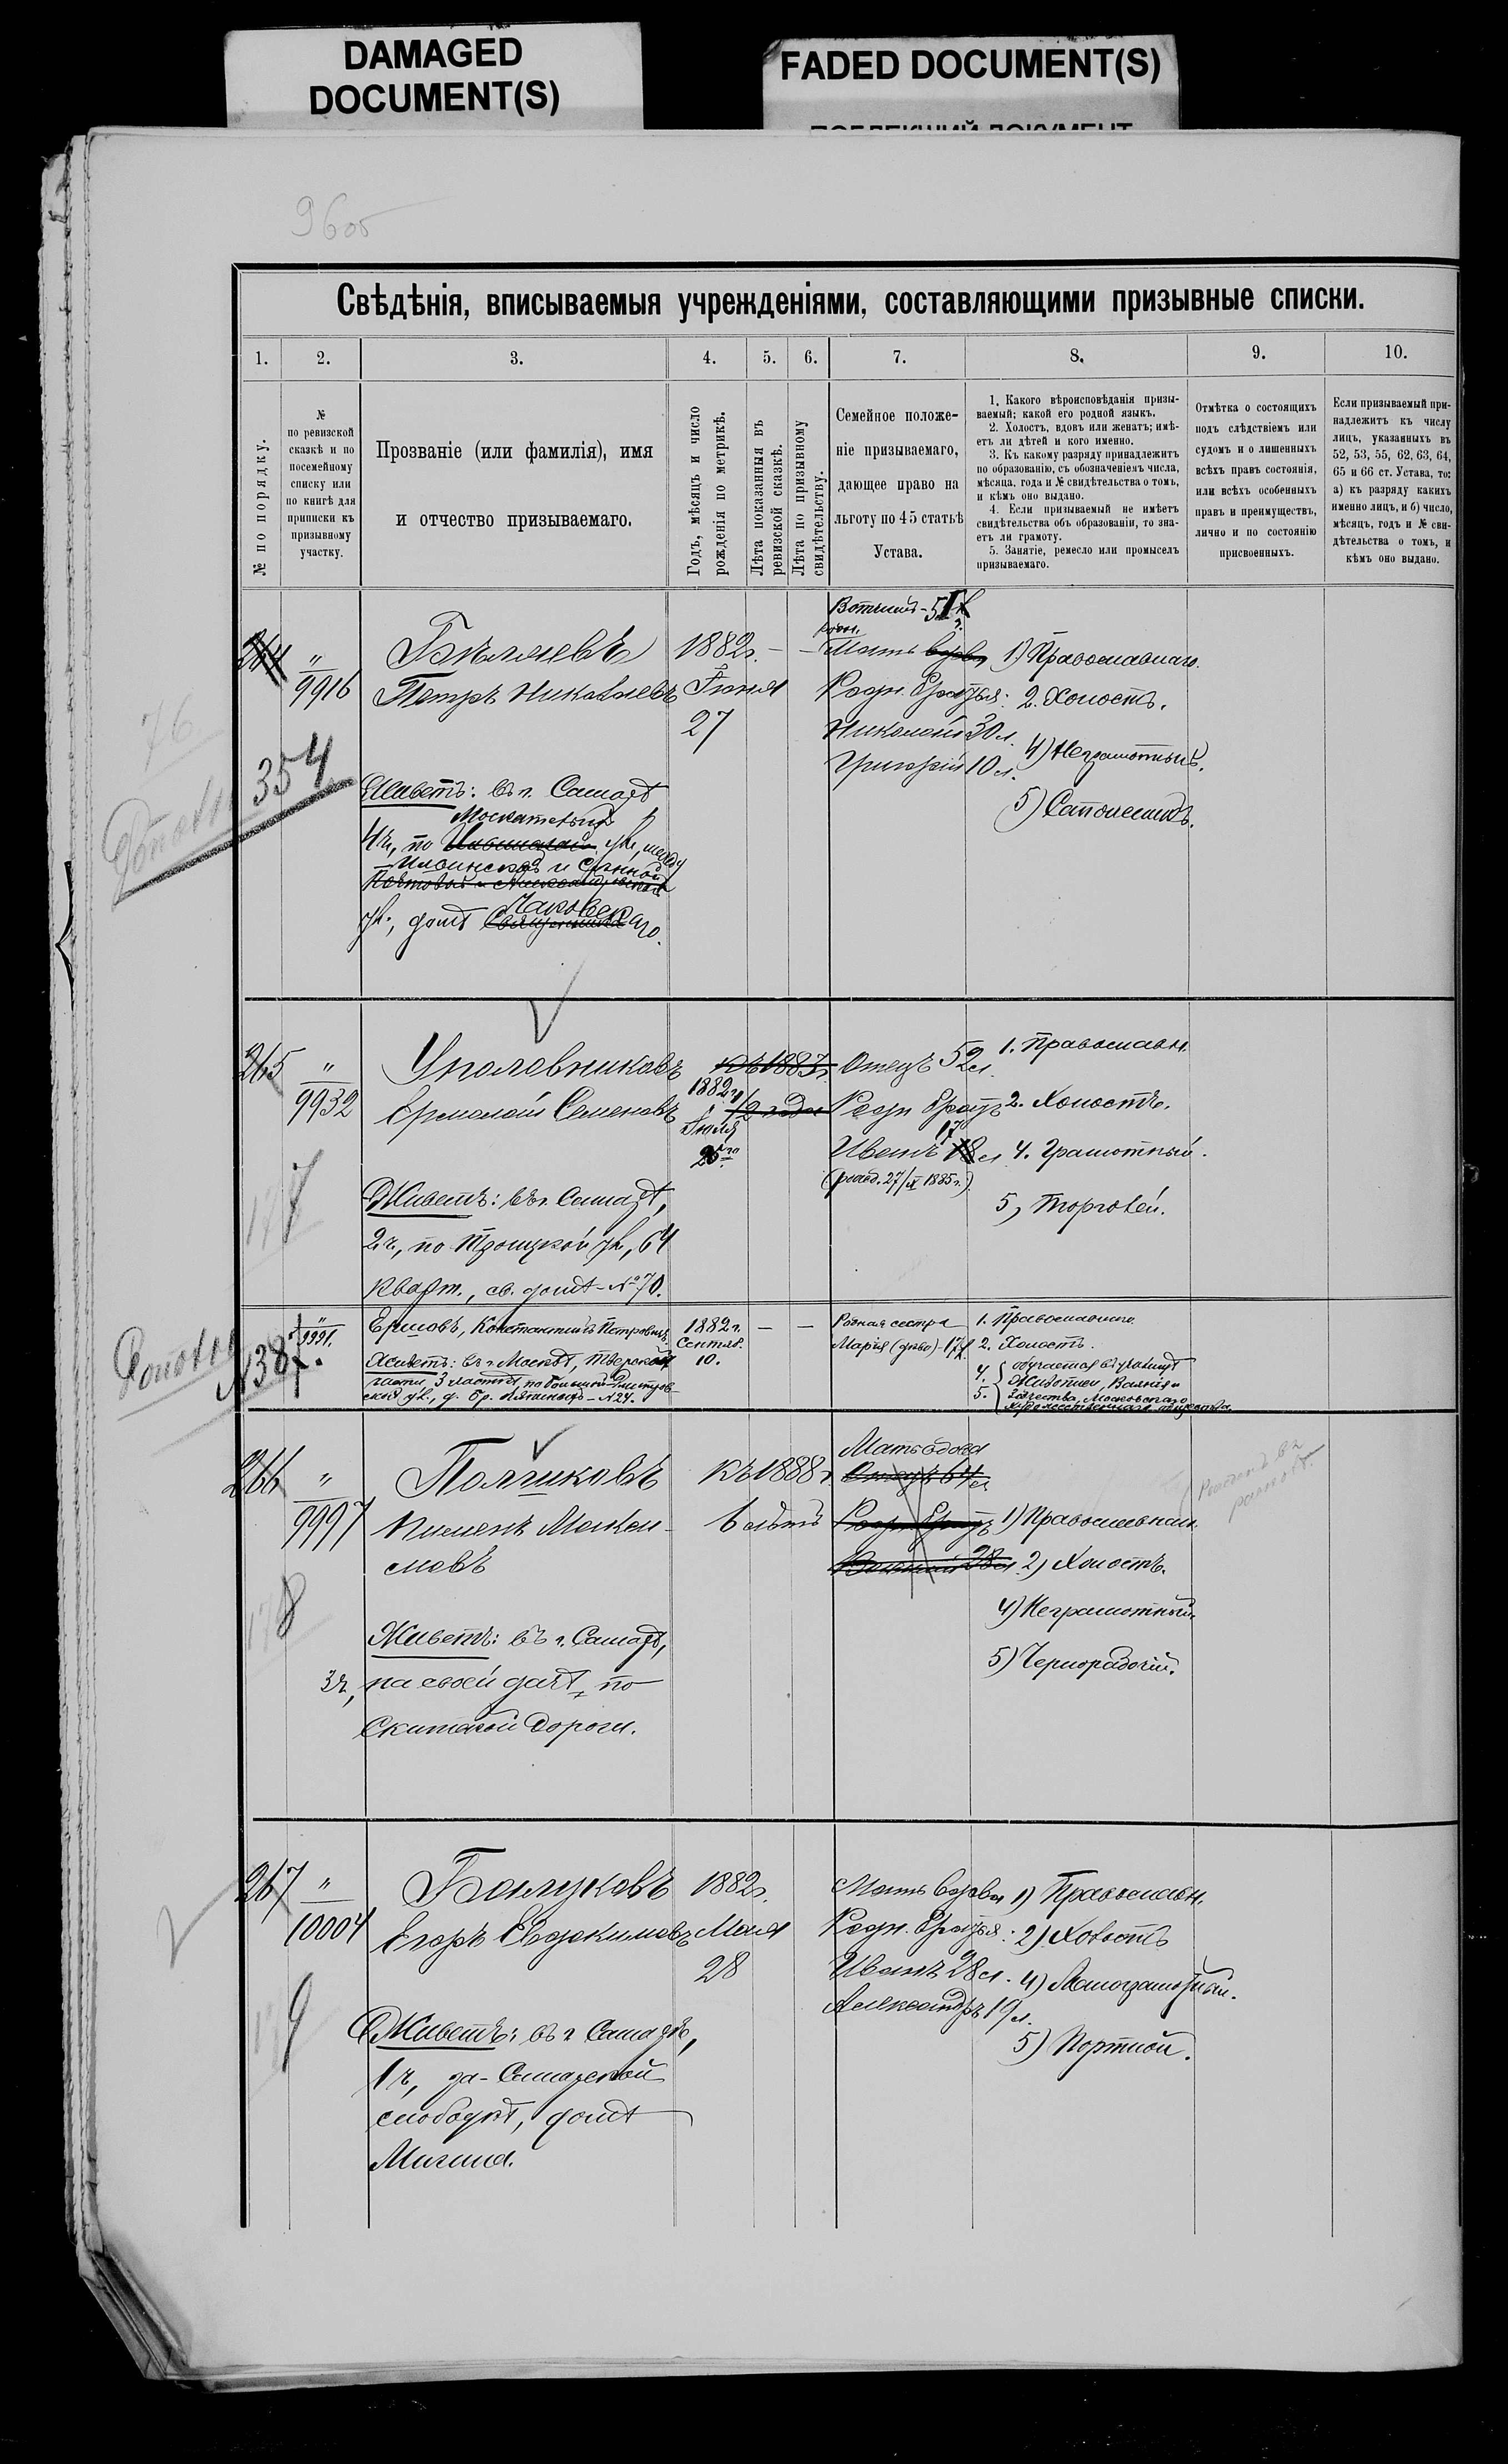 DAMAGED
DOCUMENT(S)
FADED DOCUMENT(S)
ПОБЛЕКШИЙ ДОКУМЕНТ
Свѣдѣнія, вписываемыя учрежденіями, составляющими призывные списки.
1.
2.
3.
4.
5.
6.
7.
8.
9.
10.
№ по порядку.
№
по ревизской
сказкѣ и по
посемейному
списку или
по книгѣ для
приписки къ
призывному
участку.
Прозваніе (или фамилія), имя
и отчество призываемаго.
Годъ, мѣсяцъ и число
рожденія по метрикѣ.
Лѣта показанныя въ
ревизской сказкѣ.
Лѣта по призывному
свидѣтельству.
Семейное положе-
ніе призываемаго,
дающее право на
льготу по 45 статьѣ
Устава.
1. Какого вѣроисповѣданія призы-
ваемый; какой его родной языкъ.
2. Холостъ, вдовъ или женатъ; имѣ-
етъ ли дѣтей и кого именно.
3. Къ какому разряду принадлежитъ
по образованію, съ обозначеніемъ числа,
мѣсяца, года и № свидѣтельства о томъ,
и кѣмъ оно выдано.
4. Если призываемый не имѣетъ
свидѣтельства объ образованіи, то зна-
етъ ли грамоту.
5. Занятіе, ремесло или промыселъ
призываемаго.
Отмѣтка о состоящихъ
подъ слѣдствіемъ или
судомъ и о лишенныхъ
всѣхъ правъ состоянія,
или всѣхъ особенныхъ
правъ и преимуществъ,
лично и по состоянію
присвоенныхъ.
Если призываемый при-
надлежитъ къ числу
лицъ, указанныхъ въ
52, 53, 55, 62, 63, 64,
65 и 66 ст. Устава, то:
а) къ разряду какихъ
именно лицъ, и б) число,
мѣсяцъ, годъ и № сви-
дѣтельства о томъ, и
кѣмъ оно выдано.
264
"
9916
354
76
Бѣляевъ
Петръ Николаевъ
1882г.
Іюня
27
Вотчимъ
Мать вдова
Родн. братья:
Николай 30 л.
Григорій 10 л.
1) Православнаго.
2. Холостъ.
4) Неграмотный.
5) Сапожникъ.
Живетъ: въ г. Самарѣ
4 ч., по
Ильинской и Сѣнной
ул., домъ
265
"
9932
Уполовниковъ
Ермолай Семеновъ
къ 1883г.
1882 г.
Іюля
1/2 года
Отецъ 52 л.
Родн братъ
Иванъ 18 л
17
1. Православн.
2. Холостъ.
4. Грамотный.
5, Торговей.
Живетъ: въ г. Самарѣ,
2 ч., по Троицкой ул., 64
Кварт., св. домъ № 70.
"
9991.
№ 387.
Ершовъ, Константинъ Петровичъ.
1882 г.
Сентяб.
10.
Родная сестра
Марія (дѣва)
1. Православнаго
2. Холостъ.
4.
5.
обучается въ училищѣ
Живописи, Ваянія и
Зодчества Московскаго
Живетъ: въ г. Москвѣ, Тверской
части, 3 участка, по Большой Дмитров-
ской ул., д. бр. Ляпиныхъ № 24.
266
"
9997
Ползиковъ
Пименъ Макси-
мовъ
къ 1888 г.
6 лѣтъ
Мать вдова
Отецъ 64 л
Родн братъ
28 л
1) Православнаго
2) Холостъ.
4) Неграмотный.
5) Чернорабочій.
Живетъ: въ г. Самарѣ,
3 ч, на своей дачѣ, по
Скитской дороги.
267
"
10004
Болгуковъ
Егоръ Евдокимовъ
1882г.
Мая
28
Мать вдова
Родн. братья:
Иванъ 28 л.
Александръ 19 л.
1) Православн.
2) Холостъ
4) Малограмотный.
5) Портной.
Живетъ: въ г Самарѣ,
1 ч, за-Самарской
слободкѣ, домъ
Мигина.